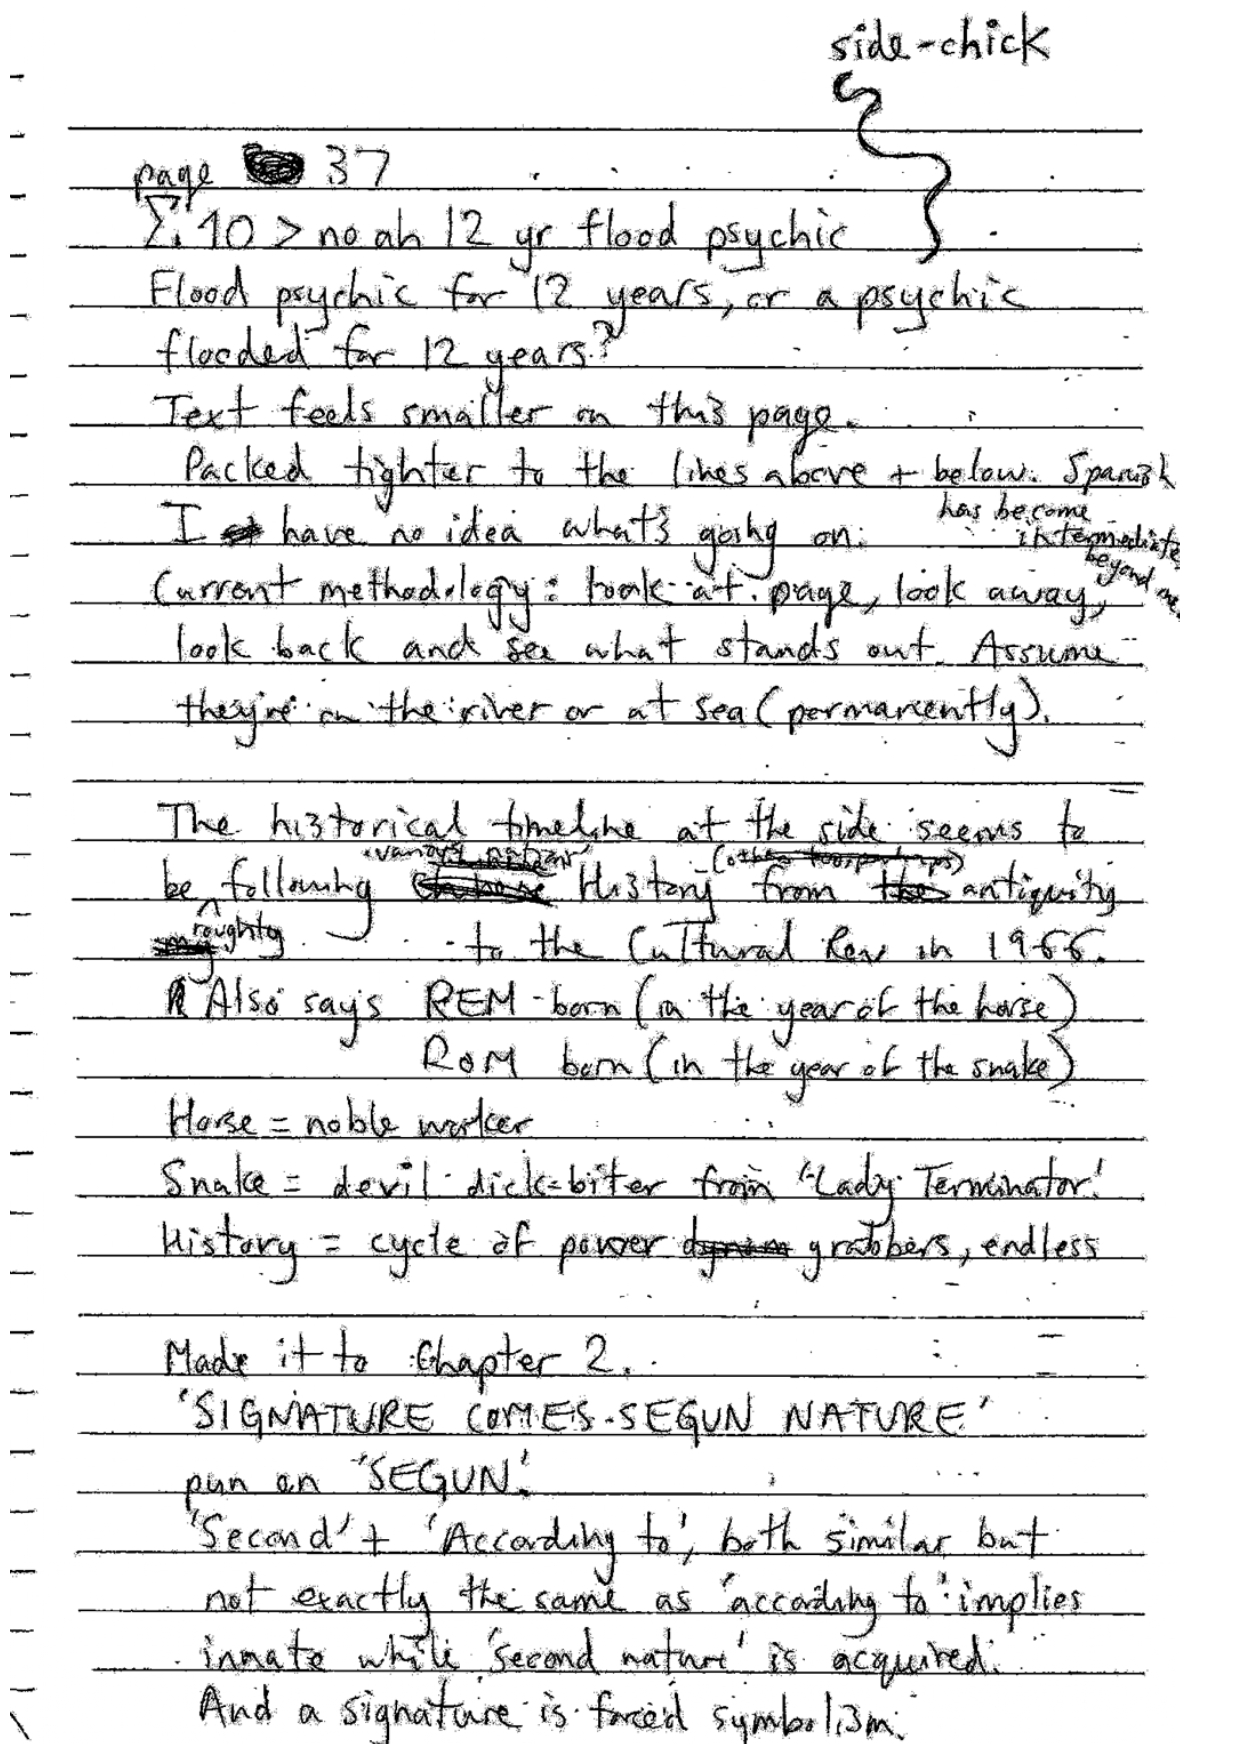 side-chick
page 37
Σ. 10 > noah 12 yr flood psychic
Flood psychic for 12 years, or a psychic
flooded for 12 years?
Text feels smaller on this page.
Packed tighter to the lines above + below. Spanish
has become
intermediate
beyond me.
I have no idea what's going on.
Current methodology: look at page, look away,
look back and see what stands out. Assume
they're on the river or at sea (permanently).
The historical timeline at the side seems to
various
be roughly following History from antiquity
to the Cultural Rev in 1966.
Also says REM born (in the year of the horse)
ROM born (in the year of the snake)
Horse = noble worker
Snake = devil dick-biter from 'Lady Terminator'
History = cycle of power grabbers, endless
Made it to Chapter 2.
'SIGNATURE COMES SEGUN NATURE'
pun on 'SEGUN'.
'Second' + 'According to', both similar but
not exactly the same as 'according to' implies
innate while 'second nature' is acquired.
And a signature is forced symbolism.